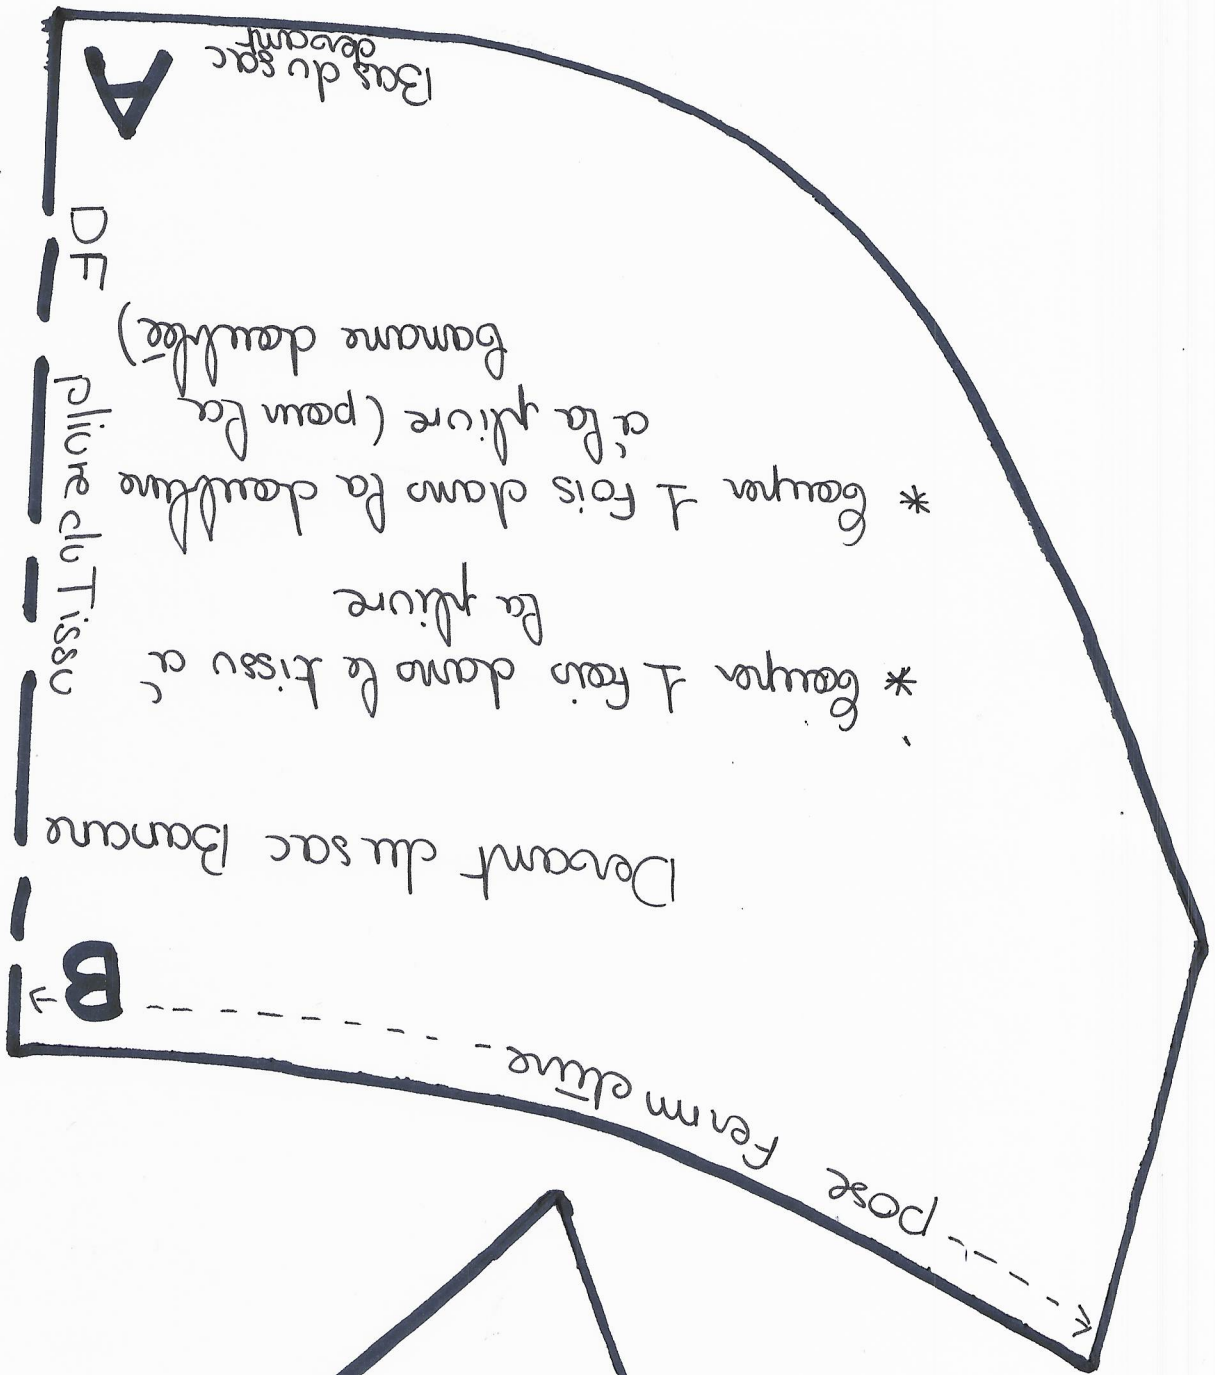 pose Fermeture
B
Devant du sac Banane
* Couper 1 fois dans le tissu à
la pliure
* Couper 1 fois dans la doublure
à la pliure (pour la
banane doublée)
DF pliure du Tissu
A
Bas du sac
devant